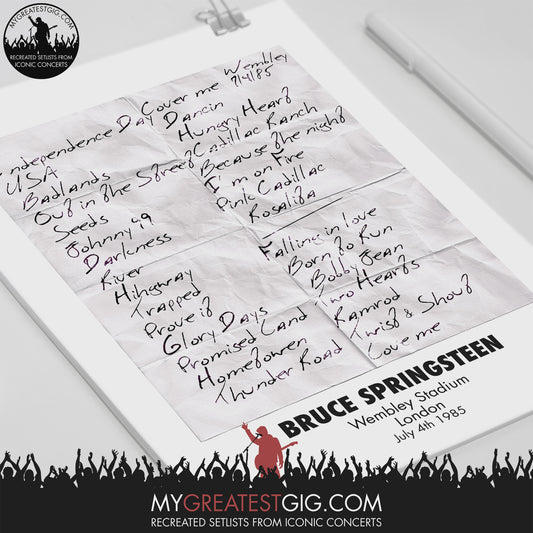 MYGREATESTGIG.COM
RECREATED SETLISTS FROM
ICONIC CONCERTS
Wembley
7/4/85
Independence Day
USA
Badlands
Out in the Street
Seeds
Johnny 99
Darkness
River
Hihgway
Trapped
Prove it
Glory Days
Promised Land
Hometowen
Thunder Road
Cover me
Dancin
Hungry Heart
Cadillac Ranch
Because the night
I'm on Fire
Pink Cadillac
Rosalita
Falling in love
Born to Run
Bobby Jean
Two Hearts
Ramrod
Twist & Shout
Love me
BRUCE SPRINGSTEEN
Wembley Stadium
London
July 4th 1985
MYGREATESTGIG.COM
RECREATED SETLISTS FROM ICONIC CONCERTS